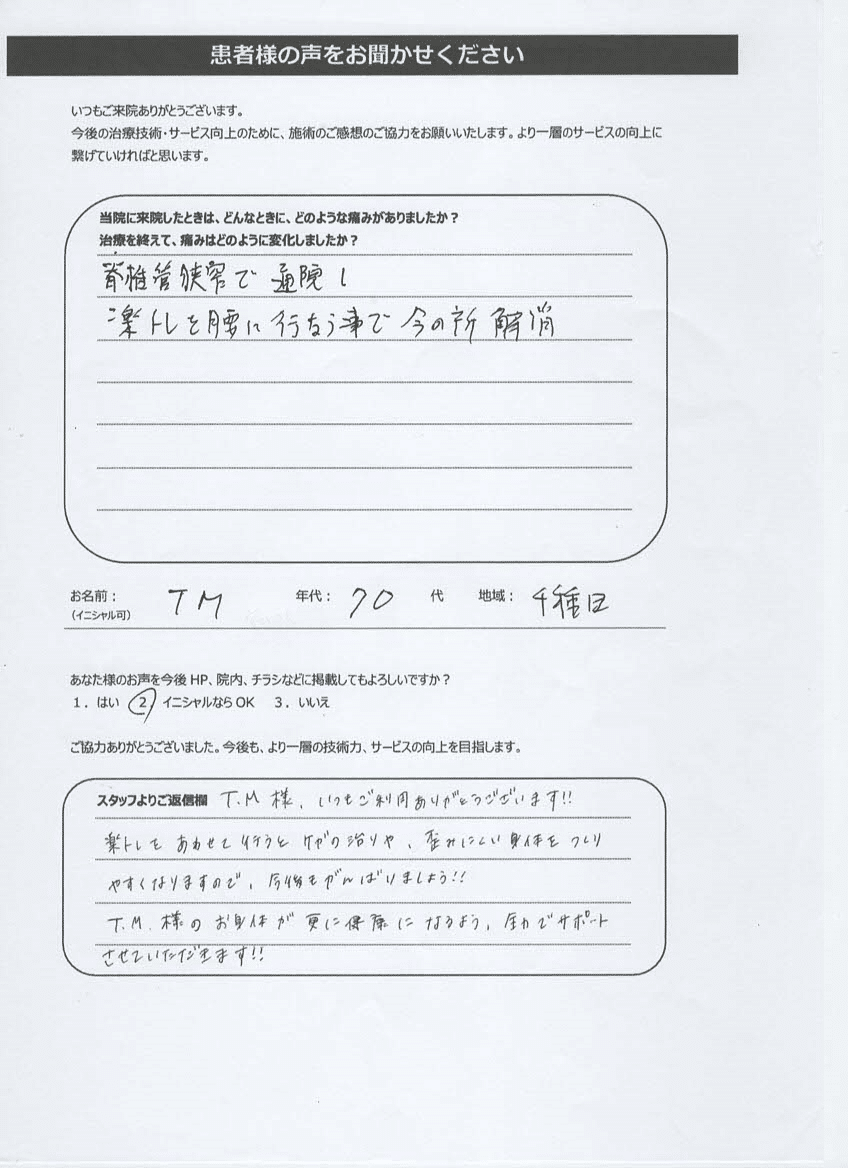 患者様の声をお聞かせください
いつもご来院ありがとうございます。
今後の治療技術・サービス向上のために、施術のご感想のご協力をお願いいたします。より一層のサービスの向上に
繋げていければと思います。
当院に来院したときは、どんなときに、どのような痛みがありましたか？
治療を終えて、痛みはどのように変化しましたか？
脊椎管狭窄で通院し
楽トレを腰に行なう事で今の所解消
お名前： TM 年代： 70 代 地域： 千種区
（イニシャル可）
あなた様のお声を今後 HP、院内、チラシなどに掲載してもよろしいですか？
1．はい 2 イニシャルなら OK 3．いいえ
ご協力ありがとうございました。今後も、より一層の技術力、サービスの向上を目指します。
スタッフよりご返信欄 T.M様、いつもご利用ありがとうございます!!
楽トレをあわせて行うとケガの治りや、歪みにくい身体をつくり
やすくなりますので、今後もがんばりましょう!!
T.M.様のお身体が更に健康になるよう、全力でサポート
させていただきます!!